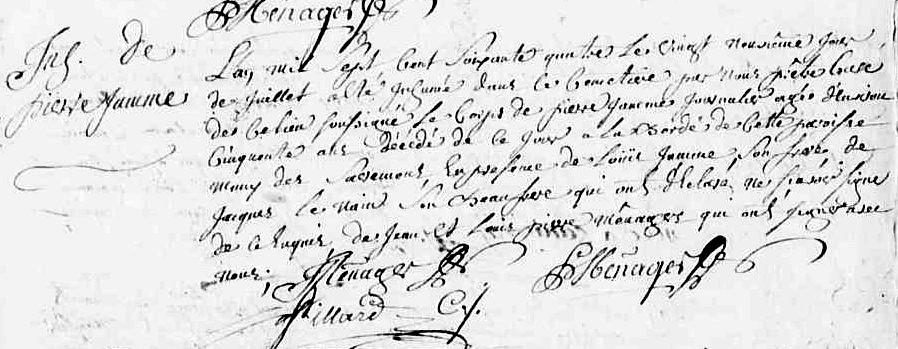 PMenager
Inh. de
pierre Jamme
L'an mil Sept Cent Soixante quatre Le vingt neuvième Jour
de Juillet a Eté Inhumé dans le Cimetière par Nous prêtre Curé
de Ce lieu soussigné le Corps de pierre Jamme Journalier agée d'Environ
Cinquante ans décédé de Ce Jour a la de Cette paroisse
muny des Sacremens, En presence de Loüis Jamme Son frere, de
Jacques le Nain Son beaufrere qui ont declaré ne sçavoir signer
de Ce Enquis, de Jean et Louis pierre Ménagers qui ont signé avec
nous;
JMénager
PMénager
Villard C.